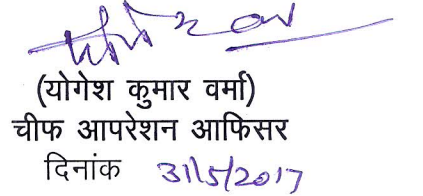 (योगेश कुमार वर्मा)
चीफ आपरेशन आफिसर
दिनांक 31/5/2017